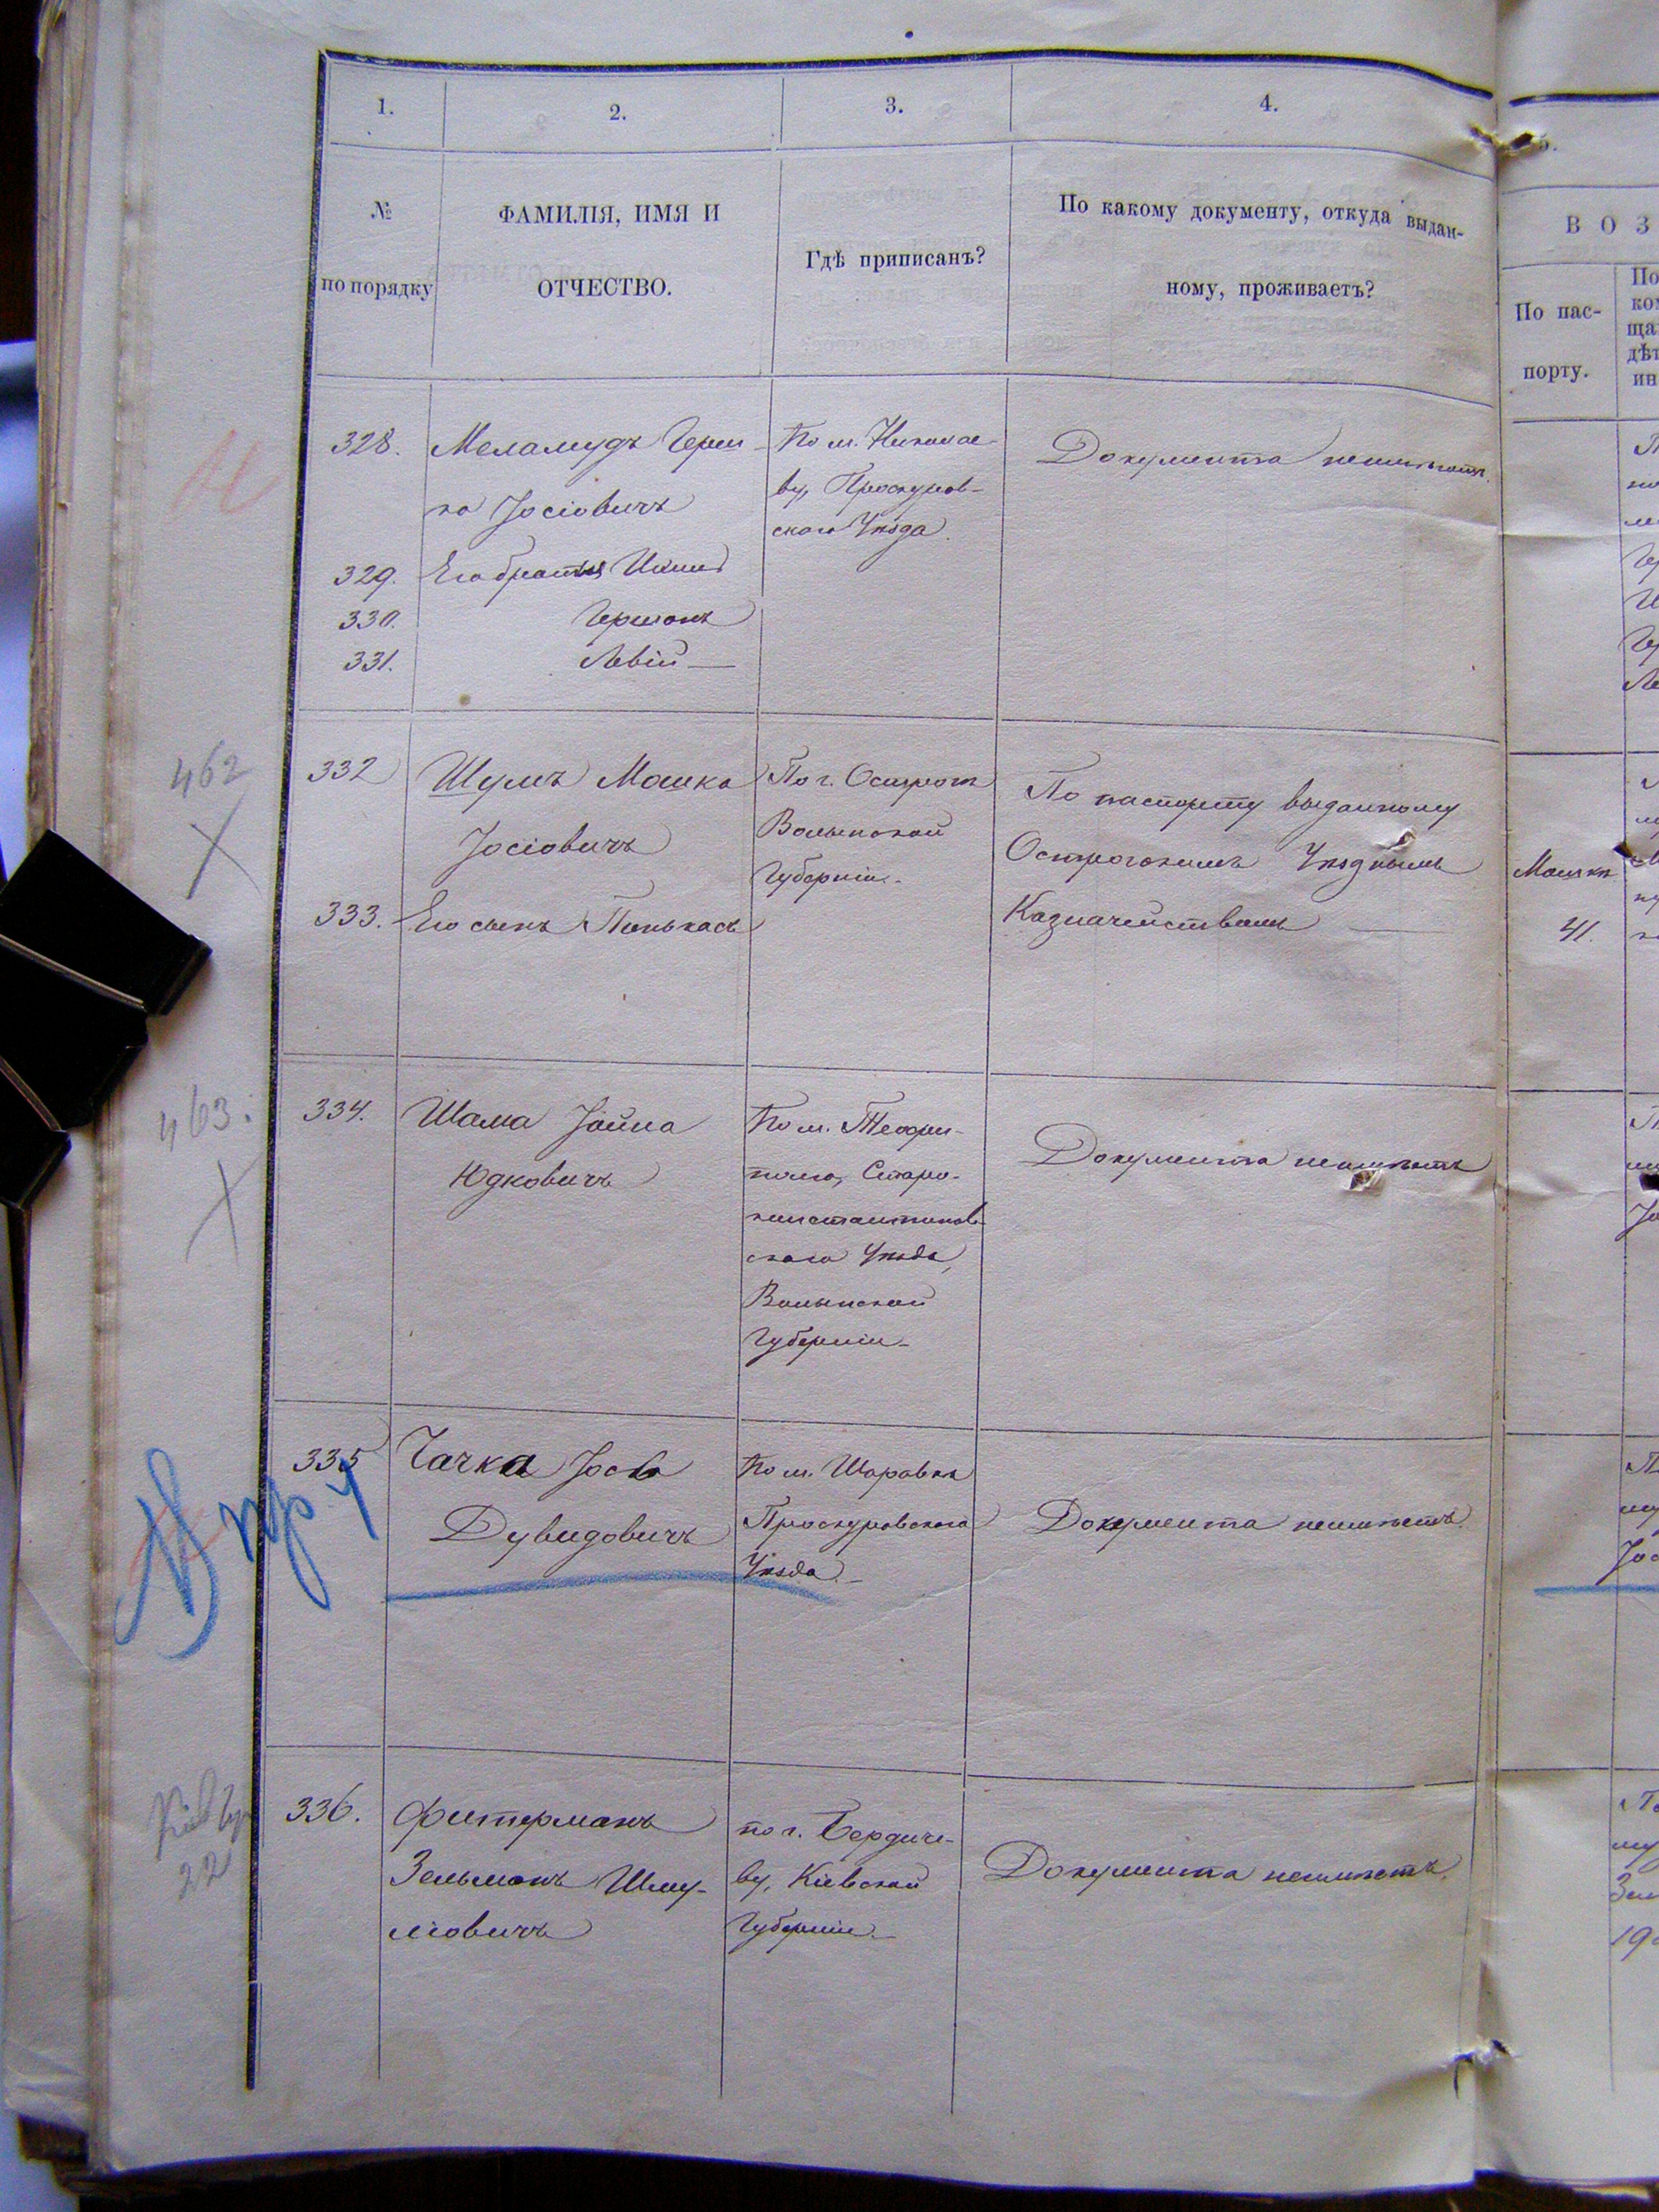 1. 2. 3. 4. 5.
№
по порядку
ФАМИЛІЯ, ИМЯ И
ОТЧЕСТВО.
Гдѣ приписанъ?
По какому документу, откуда выдан-
ному, проживаетъ?
ВОЗ
По пас-
порту.
328.
Меламудъ Герш
ко Іосіовичъ
329. Его братья Ицик
330. Гершонъ
331. Левій
По м. Николае-
ву, Проскуров-
скаго Уѣзда.
Документа неимѣютъ.
462
332
Шумъ Мошка
Іосіовичъ
333. Его сынъ Пинькасъ
По г. Острогъ
Волынской
Губерніи
По паспорту выданному
Острогскимъ Уѣзднымъ
Казначействомъ
Мошкѣ
41.
463.
334.
Шама Іойна
Юдковичъ
По м. Теофи-
полю, Старо-
константинов-
скаго Уѣзда,
Волынской
Губерніи
Документа неимѣетъ
335
Чачка Іось
Дувидовичъ
По м. Шаравкѣ
Проскуровскаго
Уѣзда.
Документа неимѣетъ.
336.
Фитерманъ
Зельманъ Шму-
ліовичъ
по г. Бердиче-
ву, Кіевской
Губерніи.
Документа неимѣетъ.
22